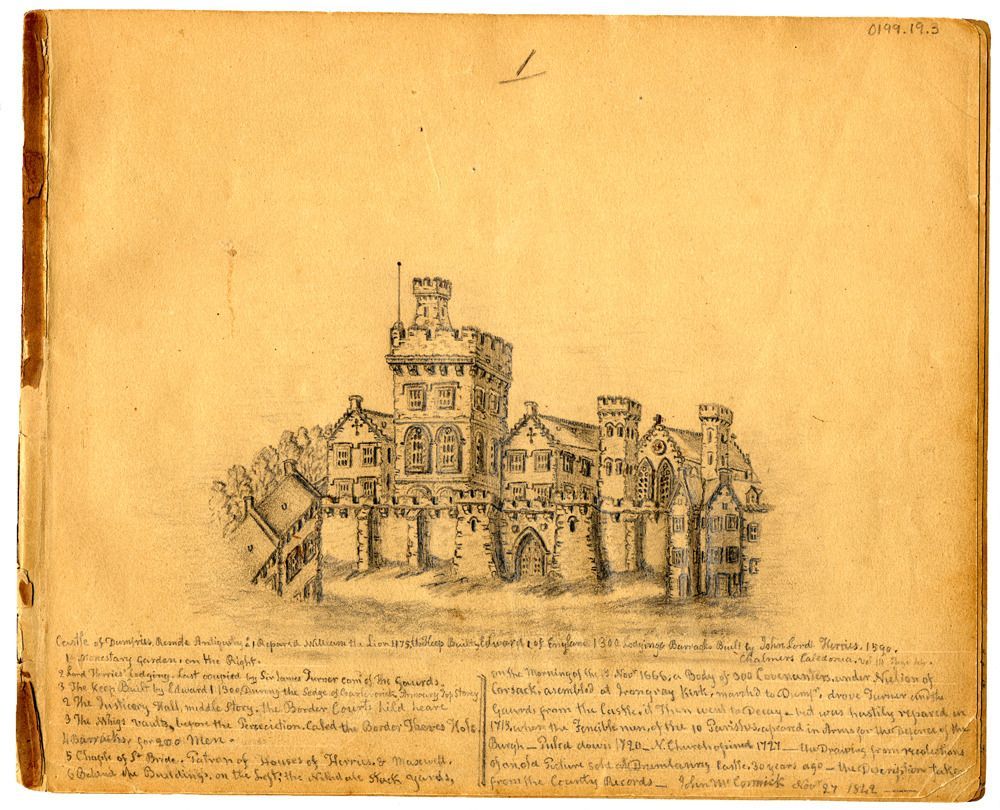 0199.19.3
1
Castle of Dumfries. Remote Antiquity, 1 Repared William the Lion 1175, the Keep Built by Edward 1 of England 1300 Lodgings Barracks Built by John Lord Herries. 1590.
Chalmers Caledonia. Vol III Page
1 Monestary garden on the Right.
2 Lord Herries' Lodging. Last occupied by Sir James Turner com'r of the Gaurds.
3 The Keep Built by Edward 1 1300, During the Seige of Coarlevorick, Armoury Top Story
2 The Justicory Hall, middle Story, the Border Courts held heare
3 The Whigs vaults, before the Persecistion. Called the Border Theives Hole.
4 Barracks, for 200 Men.
5 Chaple of St Bride. Patron of Houses of Herries, & Maxwell.
6 Behind the Buildings, on the Left, the Nithsdale Stack Yards,
on the Morning of the 15 Novr 1666, a Body of 300 Covenanters, under Neilson of
Corsack, asembled at Irongray Kirk, march'd to Dumfs, drove Turner and the
Gaurds from the Castle, it Then went to Decay - but was hastily repared in
1715, when the Fencible men, of the 10 Parishes, apeared in Arms for the Defence of the
Burgh - Puled down 1720 - N. Church, opined 1727 - the Drawing from recolections
of an old Picture sold at Drumlanrig Castle, 30 years ago - the Discription taken
from the County Records - John McCormick Novr 27 1842